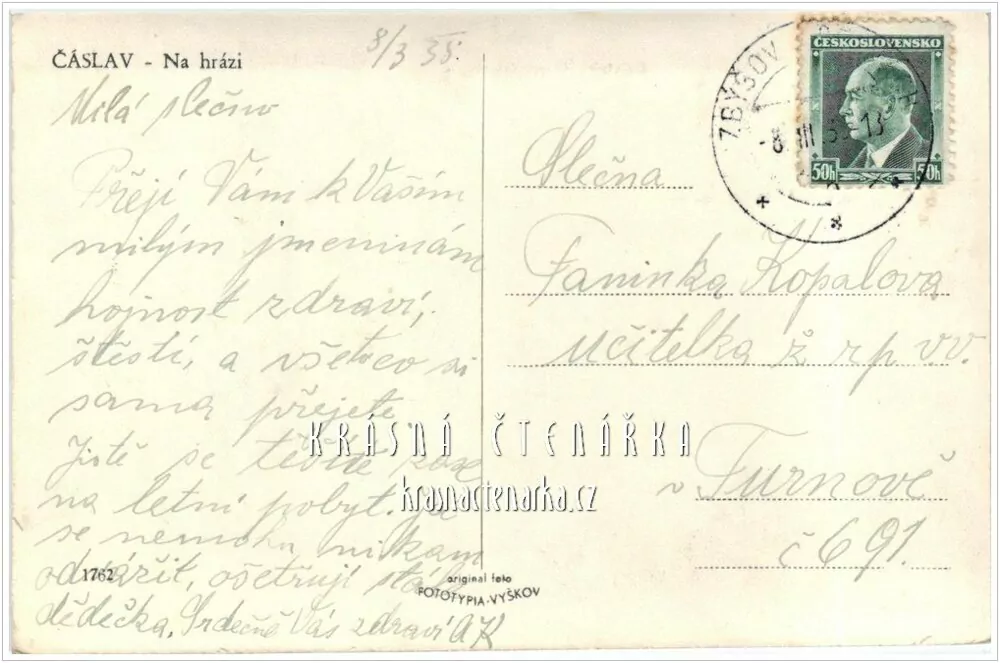 ČÁSLAV - Na hrázi
8/3 38.
Milá slečno
Přeji Vám k Vašim
milým jmeninám
hojnost zdraví,
štěstí, a všetoco si
sama přejete.
Jistě se těšíte zase
na letní pobyt. Já
se nemohu nikam
odvážit, ošetřuji stále
dědečka. Srdečně Vás zdraví AK
1762
original foto
FOTOTYPIA-VYŠKOV
ČESKOSLOVENSKO
50h 50h
ZBÝŠOV
-8. III 13
Slečna
Faninka Kopalova
učitelka ž rp vv.
v Turnově
č 691.
KRÁSNÁ ČTENÁŘKA
krasnactenarka.cz